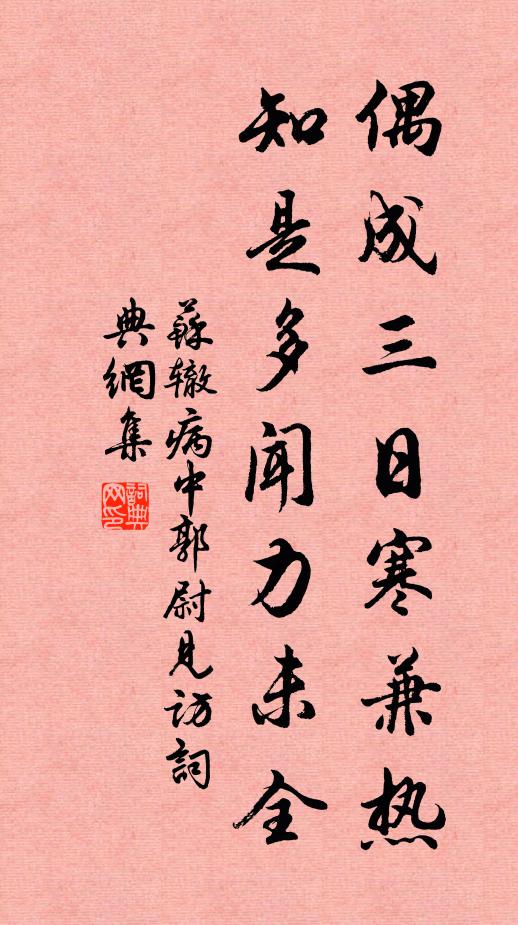 偶成三日寒兼热
知是多闻力未全
蘇辙病中郭尉見访詞
典網集
詞典
网印